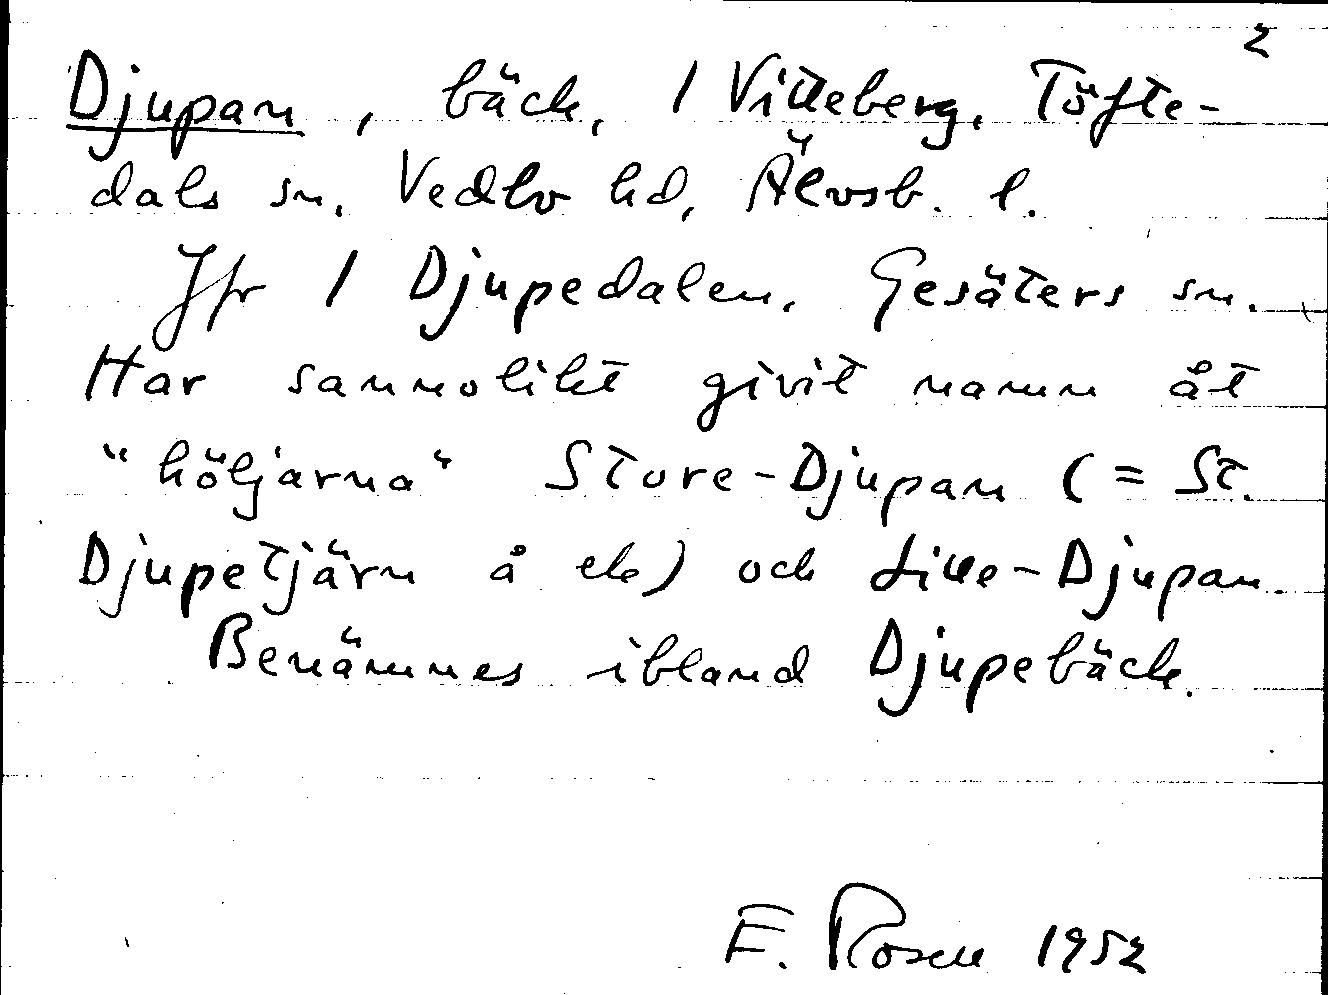 2
Djupan, bäck, / Vitteberg, Töfte-
dals sn, Vedbo hd, Älvsb. l.
Jfr / Djupedalen, Gesäters sn.
Har sannolikt givit namn åt
"höljarna" Store-Djupan (= St.
Djupetjärn å ek) och Lille-Djupan.
Benämnes ibland Djupebäck.
E. Rosell 1952